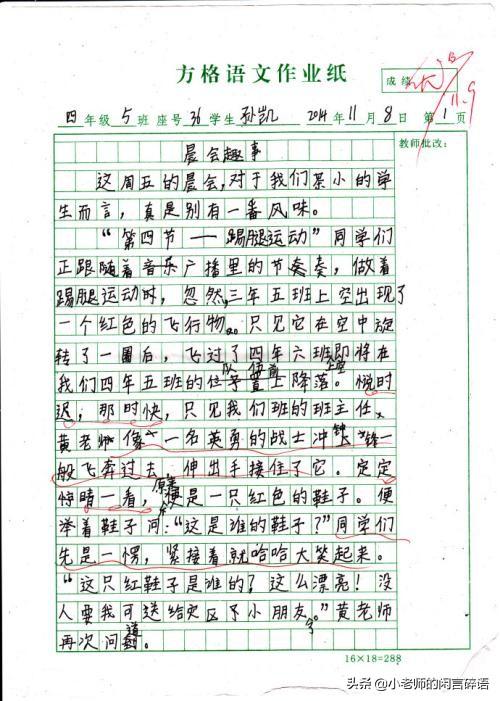 方格语文作业纸
成绩
优
11.9
四年级 5班 座号 36 学生 孙凯 2014年 11月 8日 第 1页
教师批改：
晨会趣事
这周五的晨会，对于我们某小的学
生而言，真是别有一番风味。
“第四节——踢腿运动”同学们
正跟随着音乐广播里的节奏，做着
踢腿运动时，忽然，三年五班上空出现了
一个红色的飞行物。只见它在空中旋
转了一圈后，飞过了四年六班即将在
我们四年五班的队伍前上空降落。悦时
迟，那时快，只见我们班的班主任、
黄老师像一名英勇的战士冲锋一
般飞奔过去，伸出手接住了它。定定
睛一看，原来是一只红色的鞋子。便
举着鞋子问：“这是谁的鞋子？”同学们
先是一愣，紧接着就哈哈大笑起来。
“这只红鞋子是谁的？这么漂亮！没
人要我可送给灾区小朋友了。”黄老师
再次问道。
16×18=288
头条 @小老师的闲言碎语